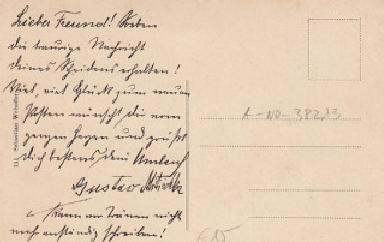 Lieber Freund! Soeben
die traurige Nachricht
deines Scheidens erhalten!
Viel, viel Glück zum neuen
Posten wünscht dir vom
ganzen Herzen und grüßt
dich bestens dein
Gustav
Kann vor Tränen nicht
mehr anständig schreiben!
A-NO-38213
E15